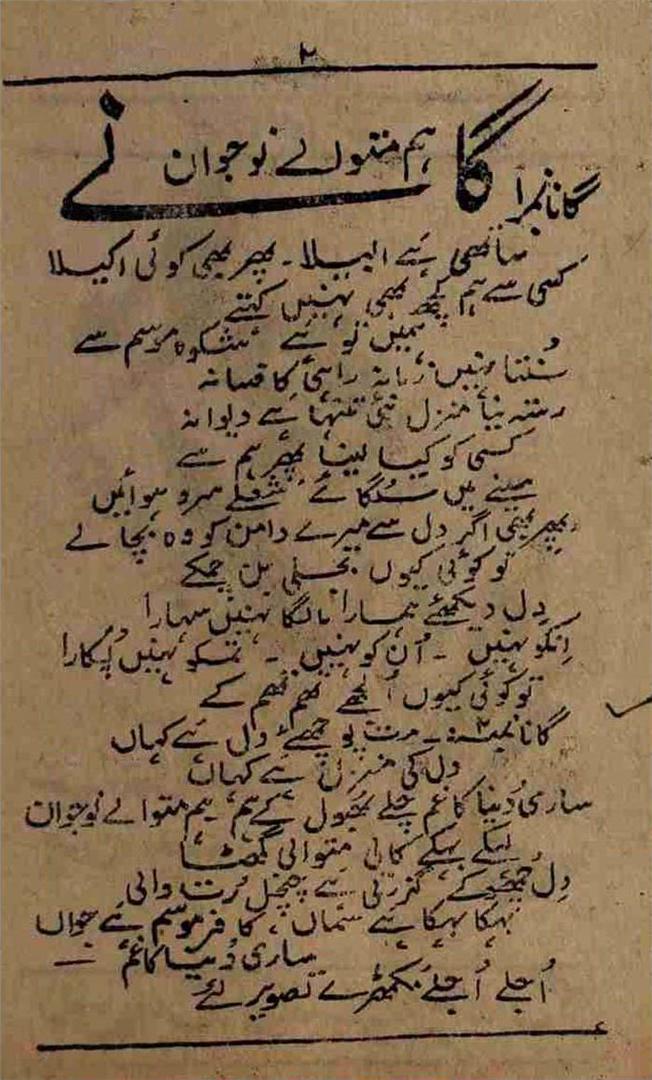 ۲
ہم متوالے نوجوان
گانے
گانا نمبرا
ساتھی ہے البیلا۔ پھر بھی کوئی اکیلا
کسی سے ہم کچھ بھی نہیں کہتے
ہمیں تو ہے شکوہ موسم سے
سُنتا نہیں زمانہ راہی کا فسانہ
رستہ نیا منزل نئی تنہا ہے دیوانہ
کسی کو کیا لینا پھر ہم سے
سینے میں سُلگائے شعلے سرد ہوائیں
پھر بھی اگر دل سے میرے دامن کو وہ بچالے
تو کوئی کیوں بجلی بن چمکے
دِل دیکھئے ہمارا مانگا نہیں سہارا
اِنکو نہیں ۔ اُن کو نہیں ۔ تمکو نہیں پُکارا
تو کوئی کیوں اُلجھے ہم سے
گانا نمبر۲۔ مت پوچھئے دل ہے کہاں
دِل کی منزل ہے کہاں
ساری دُنیا کا غم چلے بھول کے ہم، ہم متوالے نوجوان
بہکے بہکے کالی متوالی گھٹا
دِل چھیڑکے گزرتی ہے چنچل رُت والی
بہکا بہکا ہے سماں، کافر موسم ہے جواں
ساری دُنیا کا غم ــ
اُجلے اُجلے مکھڑے تصویر لئے